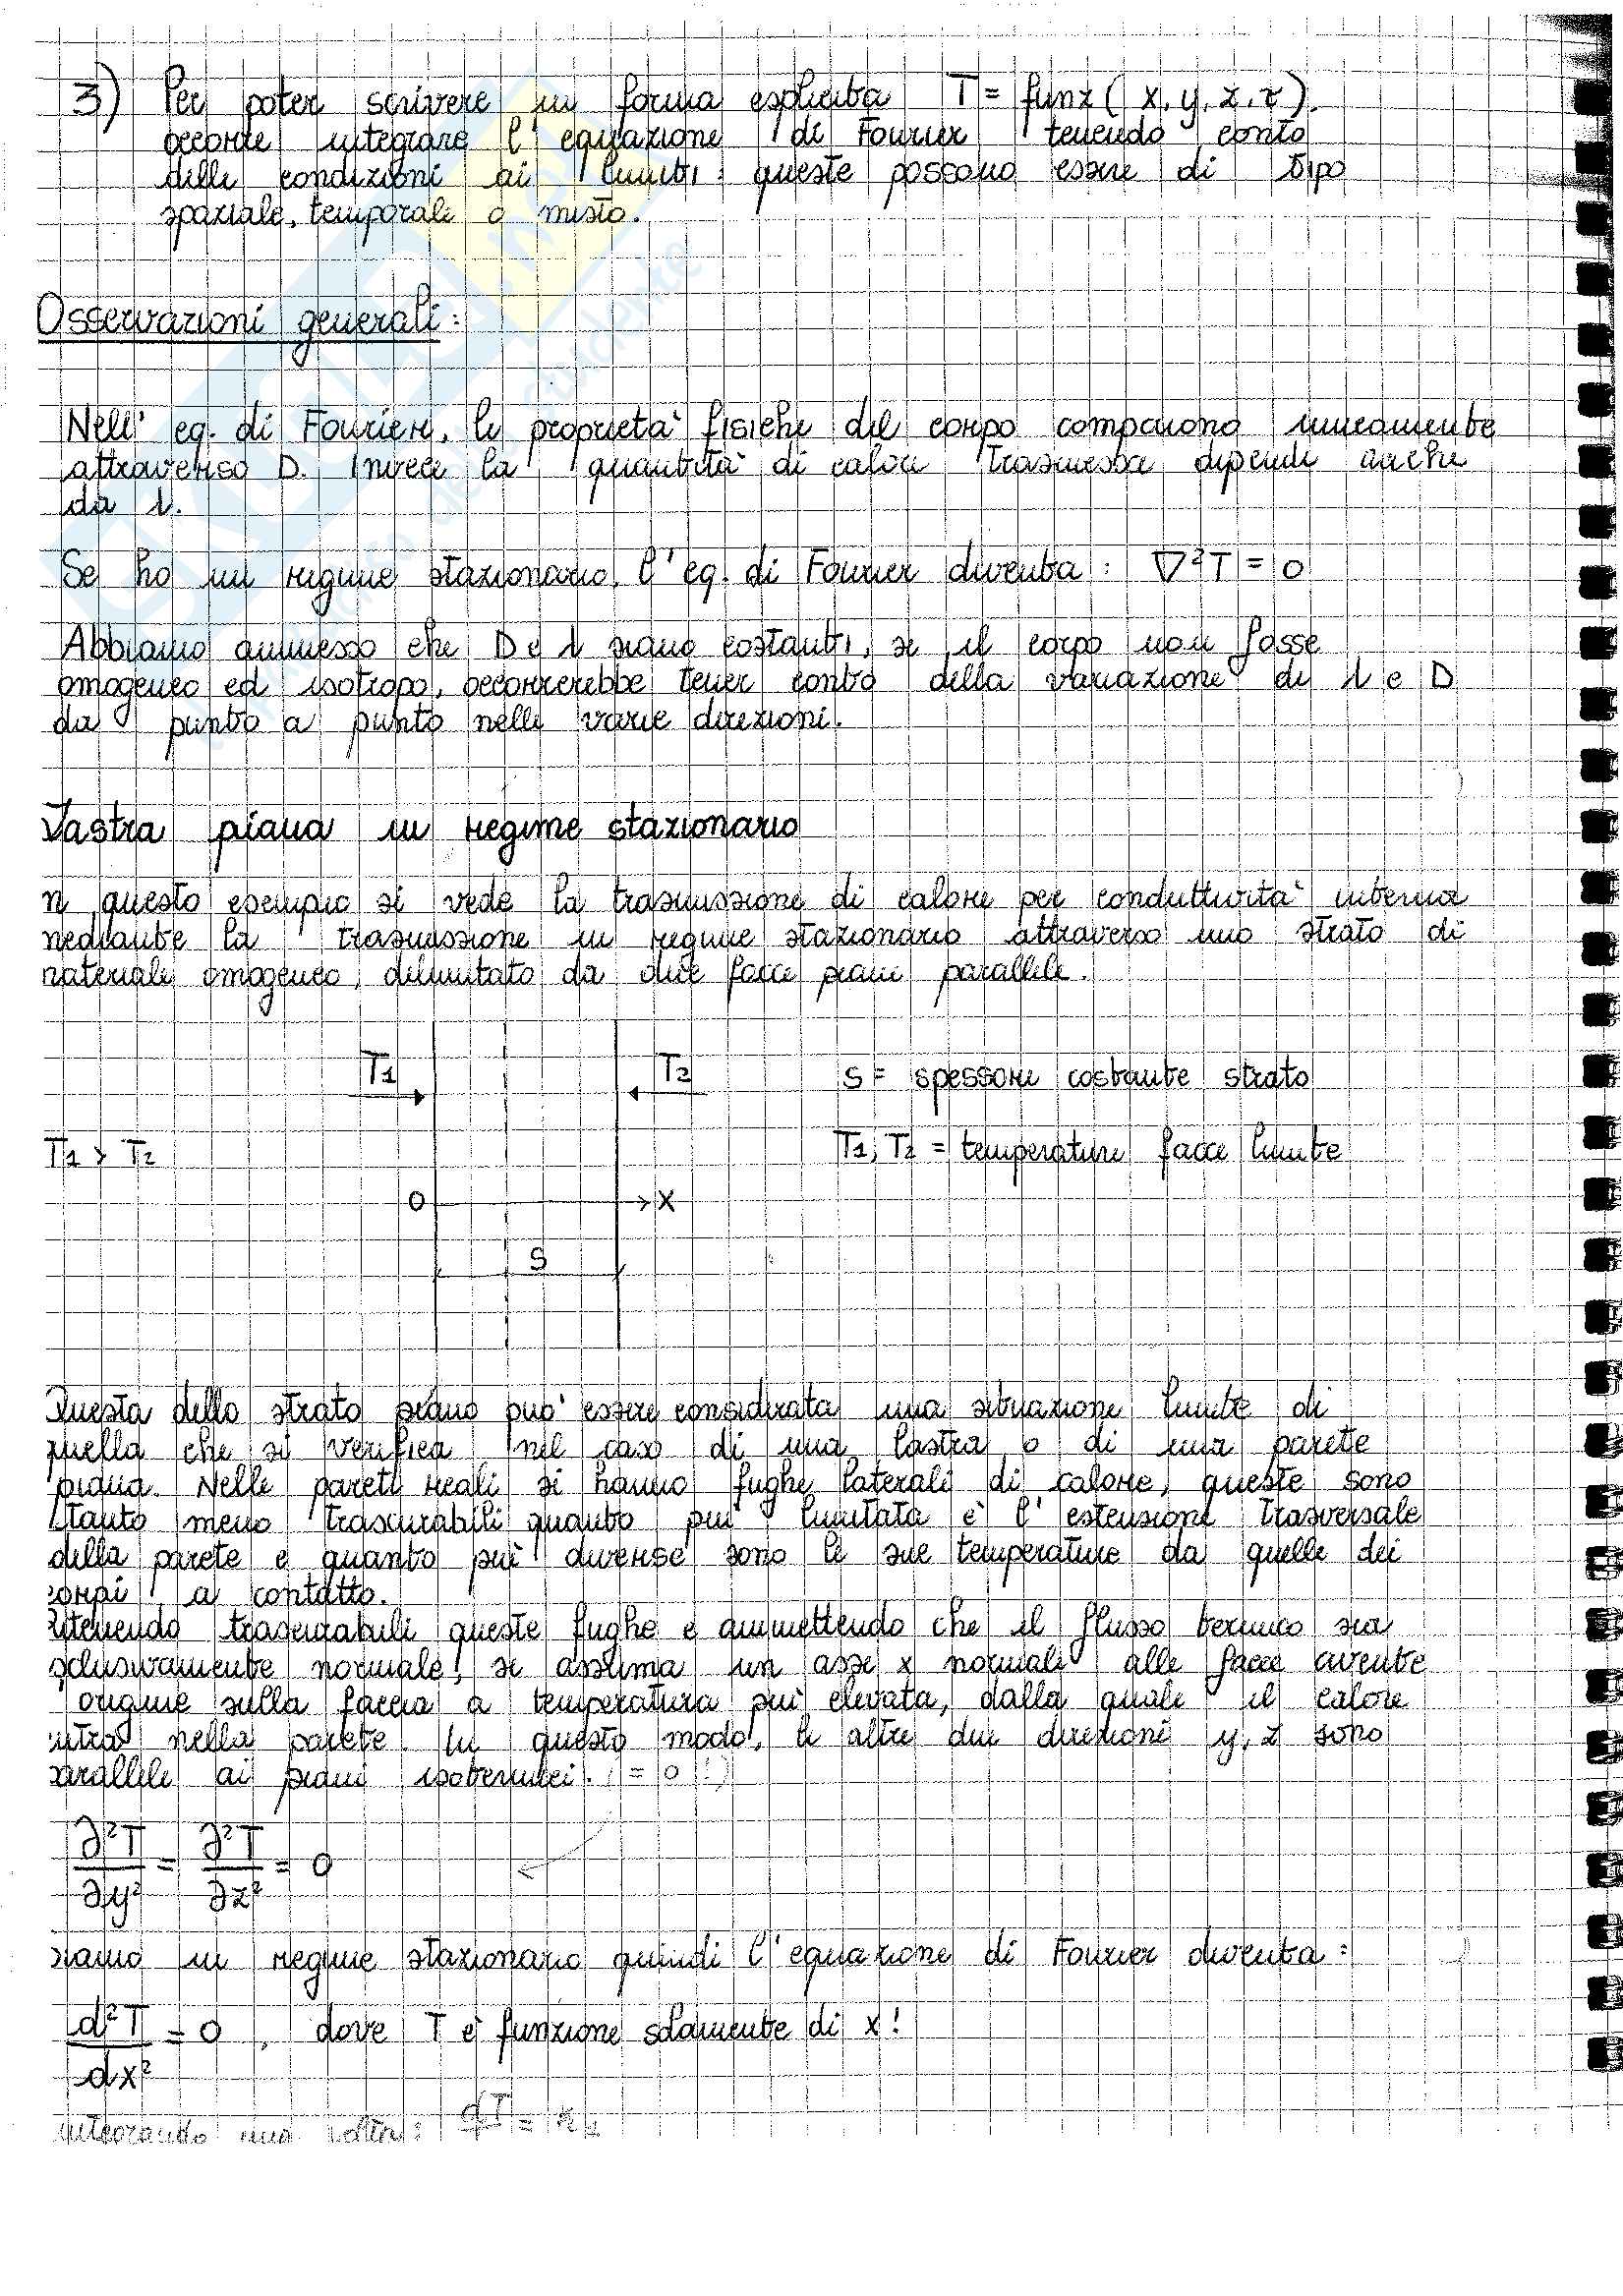 3) Per poter scrivere in forma esplicita T = funz ( x, y, z, τ ).
occorre integrare l' equazione di Fourier tenendo conto
delle condizioni ai limiti: queste possono essere di tipo
spaziale, temporale o misto.
Osservazioni generali:
Nell' eq. di Fourier, le proprietà fisiche del corpo compaiono unicamente
attraverso D. Invece la quantità di calore trasmessa dipende anche
da λ.
Se ho un regime stazionario, l' eq. di Fourier diventa: ∇²T = 0
Abbiamo ammesso che D e λ siano costanti, se il corpo non fosse
omogeneo ed isotropo, occorrerebbe tener conto della variazione di λ e D
da punto a punto nelle varie direzioni.
Lastra piana in regime stazionario
n questo esempio si vede la trasmissione di calore per conduttività interna
mediante la trasmissione in regime stazionario attraverso uno strato di
materiale omogeneo, delimitato da due facce piane parallele.
T1 T2 S = spessore costante strato
T1 > T2 T1, T2 = temperature facce limite
O x
S
Questa dello strato piano può essere considerata una situazione limite di
quella che si verifica nel caso di una lastra o di una parete
piana. Nelle pareti reali si hanno fughe laterali di calore, queste sono
tanto meno trascurabili quanto più limitata è l' estensione trasversale
della parete e quanto più diverse sono le sue temperature da quelle dei
corpi a contatto.
Ritenendo trascurabili queste fughe e ammettendo che il flusso termico sia
sclusivamente normale, si assuma un asse x normale alle facce avente
origine sulla faccia a temperatura più elevata, dalla quale il calore
entra nella parete. In questo modo, le altre due direzioni y, z sono
parallele ai piani isotermici. (= 0 !)
∂²T/∂y² = ∂²T/∂z² = 0
siamo in regime stazionario quindi l'equazione di Fourier diventa:
d²T/dx² = 0 , dove T è funzione solamente di x!
integrando una volta: dT = k1